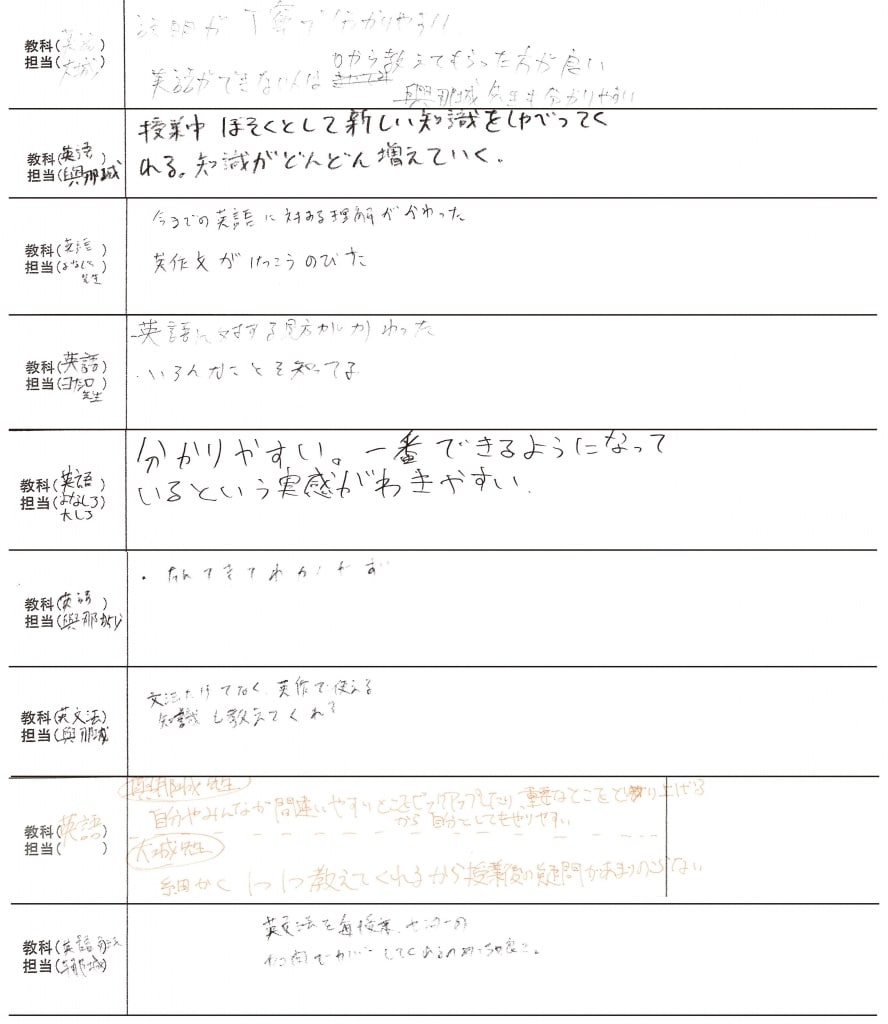 説明が丁寧で分かりやすい
教科(英語)
担当(大城)
0から教えてもらった方が良い
英語ができない人は
與那城先生も分かりやすい
授業中 ほそくとして新しい知識をしゃべってく
れる。知識がどんどん増えていく.
教科(英語)
担当(與那城)
今までの英語に対する理解がかわった
英作文がけっこうのびた
教科(英語)
担当(よなしろ先生)
英語に対する見方がかわった
・いろんなことを知ってる
教科(英語)
担当(ヨナシロ先生)
分かりやすい。一番できるようになって
いるという実感がわきやすい.
教科(英語)
担当(よなしろ)
大しろ
教科(英語)
担当(與那
文法だけでなく、英作で使える
知識も教えてくれる
教科(英文法)
担当(與那城
與那城先生
自分やみんなが間違いやすいところピックアップしたり、重要なとこをとり上げる
から自分としてもやりやすい
教科(英語)
担当( )
大城先生
細かく1つ1つ教えてくれるから授業後の疑問があまりのこらない
英文法を毎授業、センターの
教科(英語
担当(與那城)